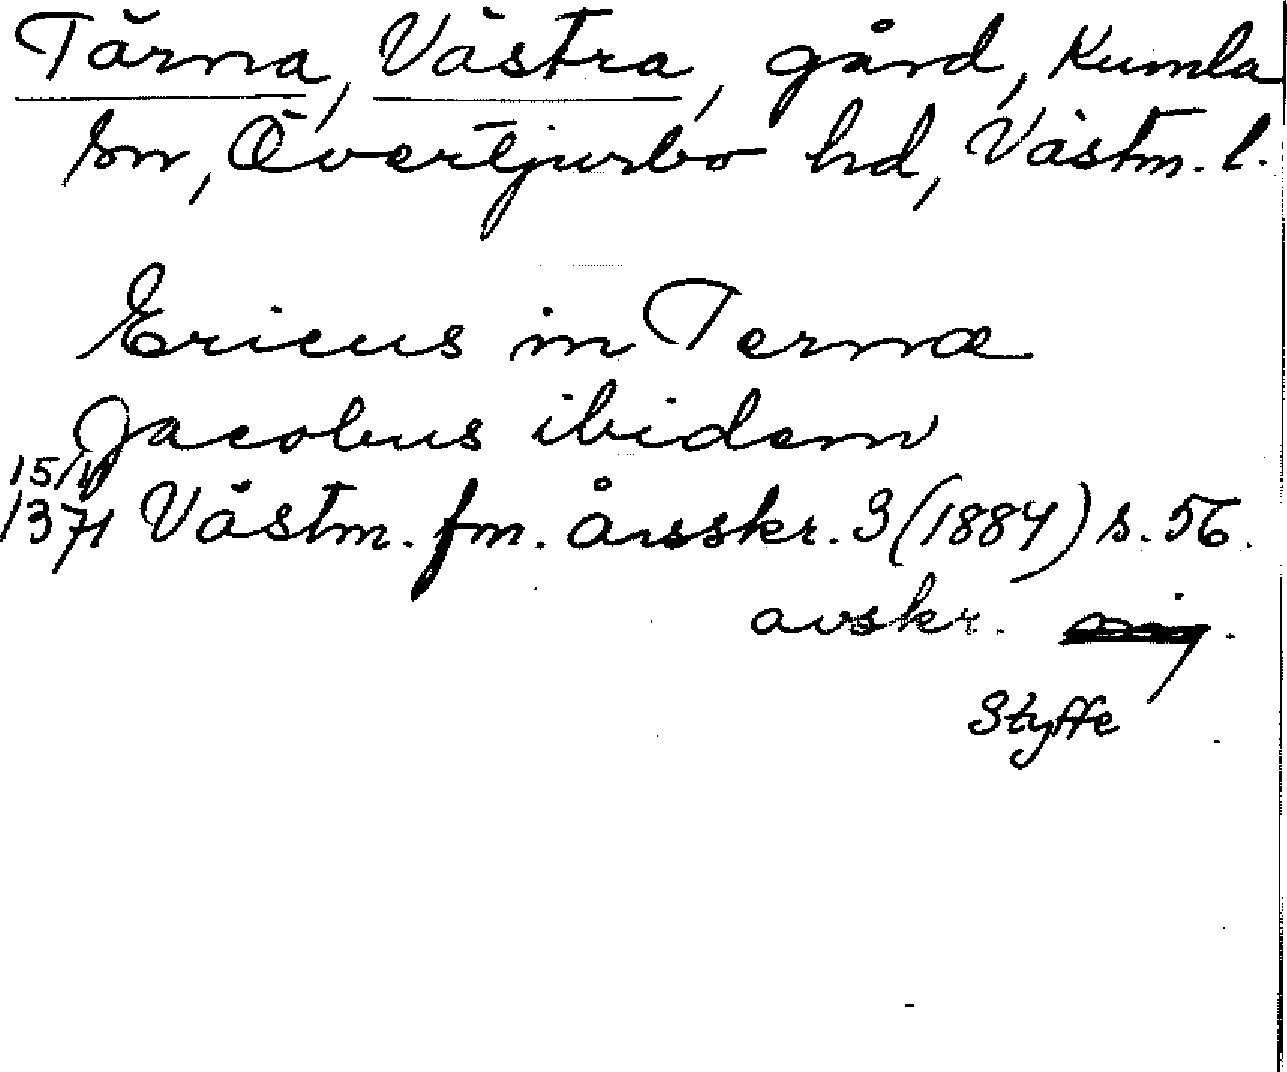 Tärna, Västra, gård, Kumla
sn, Övertjurbo hd, Västm. l.
Ericus in Ternæ
Jacobus ibidem
15/11
1371 Västm. fm. årsskr. 3 (1884) s. 56.
avskr.
Styffe